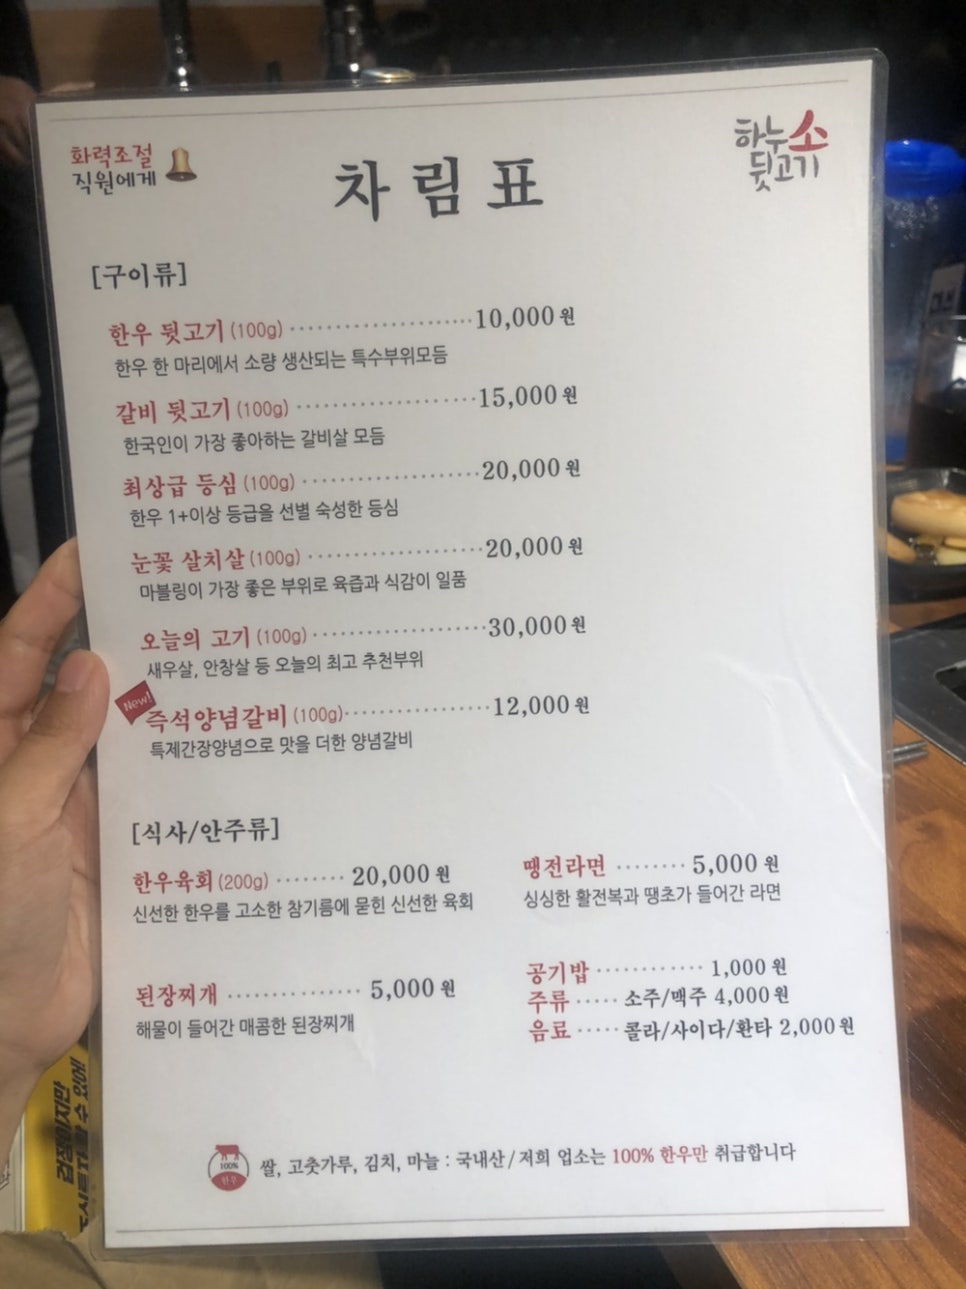 화력조절
직원에게
하누소
뒷고기
차림표
[구이류]
한우 뒷고기 (100g) ······················ 10,000 원
한우 한 마리에서 소량 생산되는 특수부위모듬
갈비 뒷고기 (100g) ····················· 15,000 원
한국인이 가장 좋아하는 갈비살 모듬
최상급 등심 (100g) ····················· 20,000 원
한우 1+이상 등급을 선별 숙성한 등심
눈꽃 살치살 (100g) ····················· 20,000 원
마블링이 가장 좋은 부위로 육즙과 식감이 일품
오늘의 고기 (100g) ····················· 30,000 원
새우살, 안창살 등 오늘의 최고 추천부위
New!
즉석양념갈비 (100g) ················· 12,000 원
특제간장양념으로 맛을 더한 양념갈비
[식사/안주류]
한우육회 (200g) ········ 20,000 원
신선한 한우를 고소한 참기름에 묻힌 신선한 육회
땡전라면 ········ 5,000 원
싱싱한 활전복과 땡초가 들어간 라면
된장찌개 ··············· 5,000 원
해물이 들어간 매콤한 된장찌개
공기밥 ············ 1,000 원
주류 ····· 소주/맥주 4,000 원
음료 ····· 콜라/사이다/환타 2,000 원
100%
한우
쌀, 고춧가루, 김치, 마늘 : 국내산 / 저희 업소는 100% 한우만 취급합니다